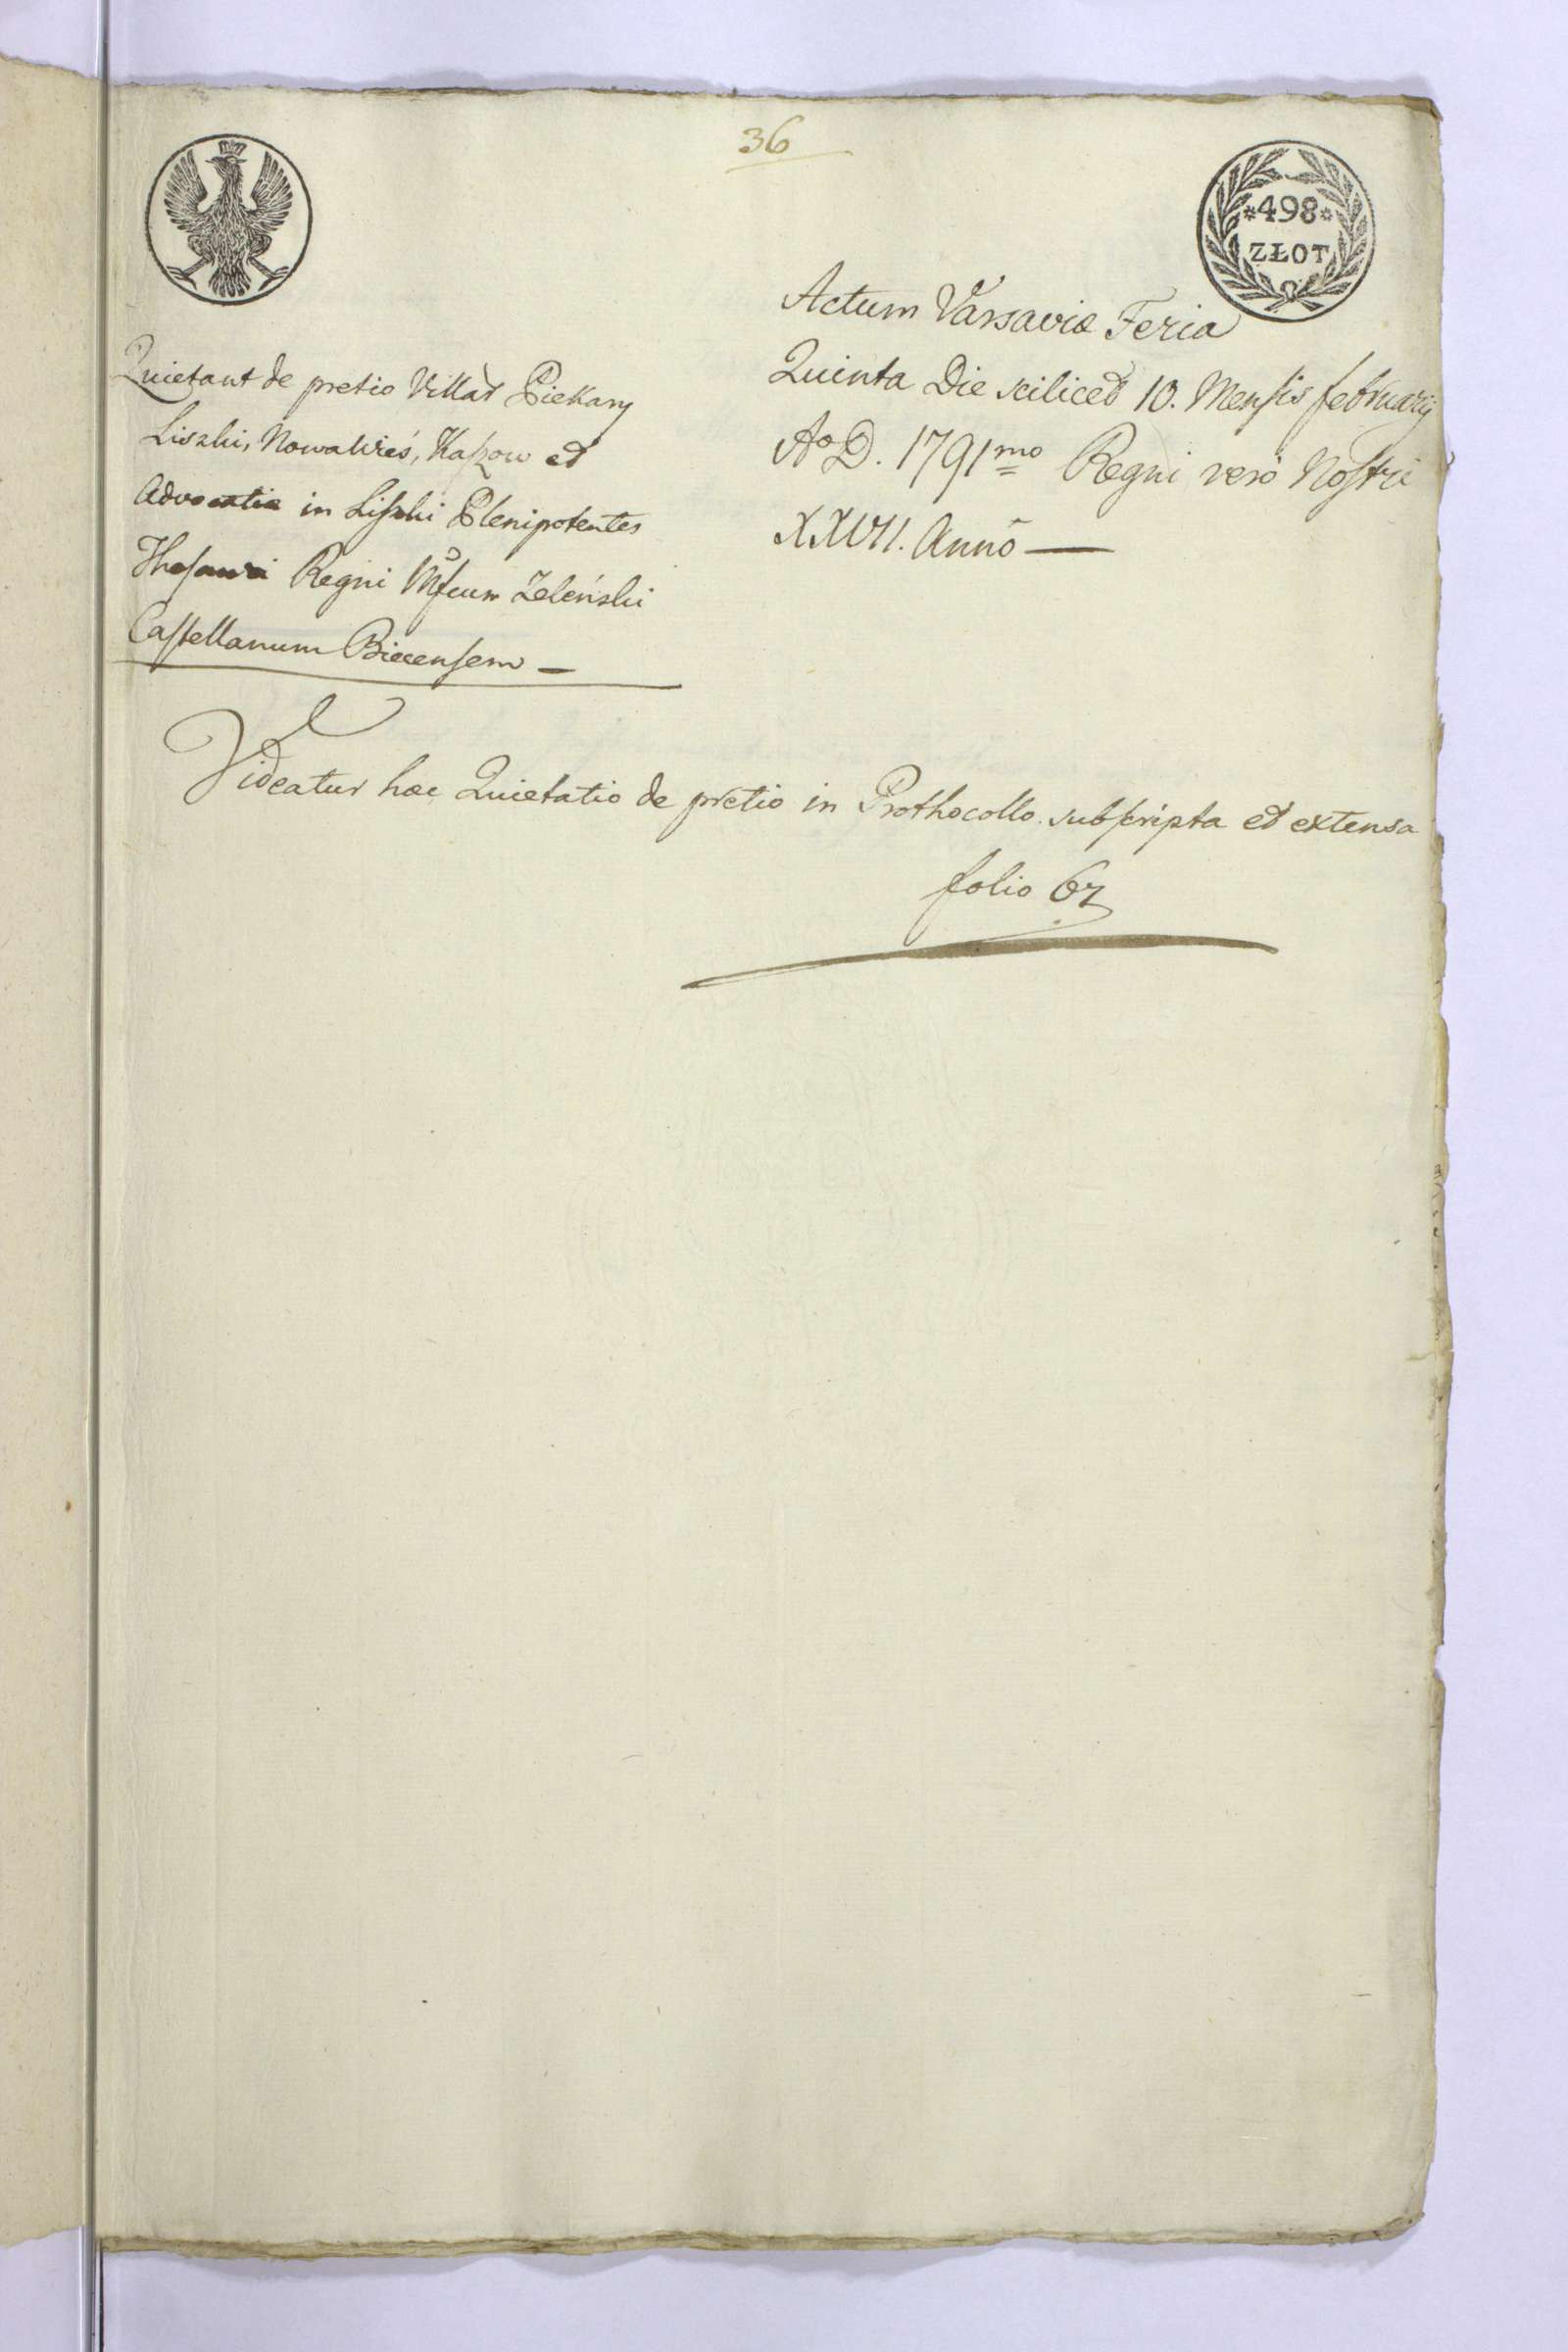 36
*498*
ZŁOT
Actum Varsaviæ Feria
Quinta Die scilicet 10. Mensis februarij
Aº D. 1791mo Regni vero Nostri
XXVII. Anno —
Quietant de pretio Villar Piekary
Liszki, Nowawieś, Kaszow et
Advocatiæ in Liszki Plenipotentes
Thesauri Regni Mfcum Zeleński
Castellanum Biecensem —
Videatur hæc Quietatio de pretio in Prothocollo subscripta et extensa
folio 67